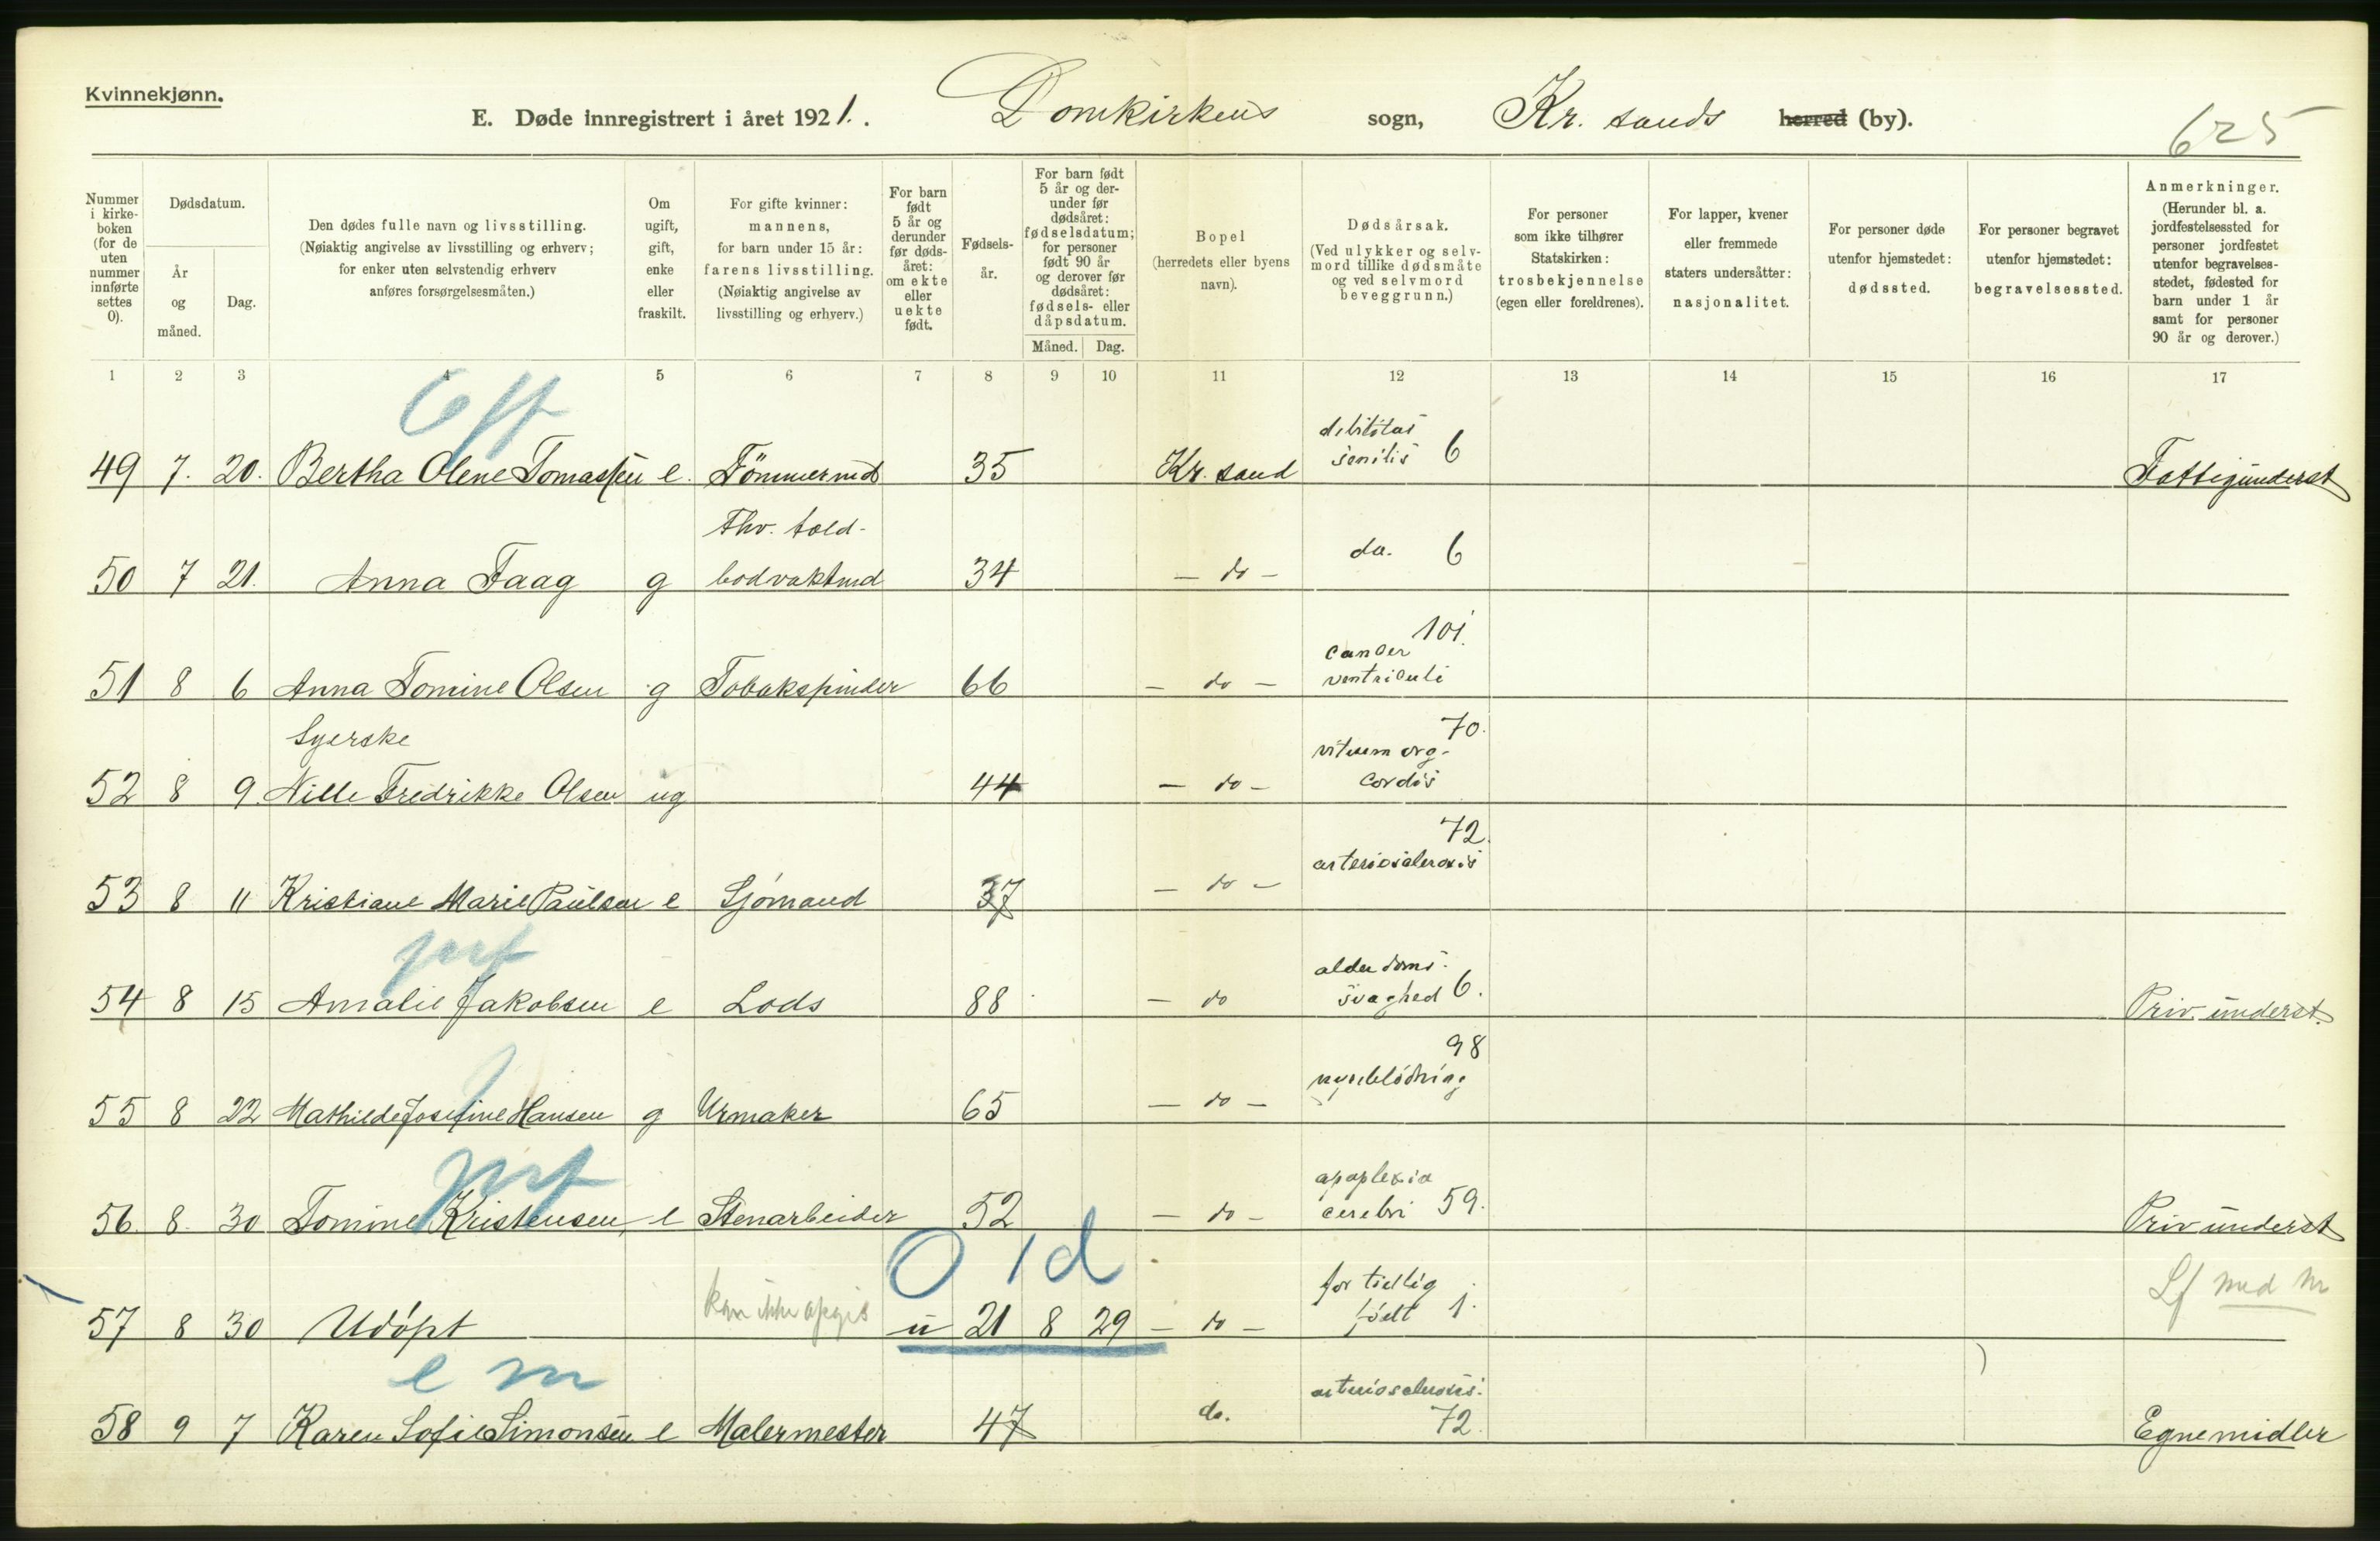 Kvinnekjønn.
E. Døde innregistrert i året 1921. Domkirkens sogn, Kr. sands herred (by).
625
Nummer i kirke-boken (for de uten nummer innførte settes 0).
Dødsdatum.
År og måned.
Dag.
Den dødes fulle navn og livsstilling.
(Nøiaktig angivelse av livsstilling og erhverv; for enker uten selvstendig erhverv anføres forsørgelsesmåten.)
Om ugift, gift, enke eller fraskilt.
For gifte kvinner: mannens, for barn under 15 år: farens livsstilling.
(Nøiaktig angivelse av livsstilling og erhverv.)
For barn født 5 år og derunder før døds-året: om ekte eller uekte født.
Fødsels-år.
For barn født 5 år og der-under før dødsåret: fødselsdatum; for personer født 90 år og derover før dødsåret: fødsels- eller dåpsdatum.
Måned. Dag.
Bopel (herredets eller byens navn).
Dødsårsak.
(Ved ulykker og selv-mord tillike dødsmåte og ved selvmord beveggrunn.)
For personer som ikke tilhører Statskirken: trosbekjennelse (egen eller foreldrenes).
For lapper, kvener eller fremmede staters undersåtter: nasjonalitet.
For personer døde utenfor hjemstedet: dødssted.
For personer begravet utenfor hjemstedet: begravelsessted.
Anmerkninger.
(Herunder bl. a. jordfestelsessted for personer jordfestet utenfor begravelses-stedet, fødested for barn under 1 år samt for personer 90 år og derover.)
1 2 3 4 5 6 7 8 9 10 11 12 13 14 15 16 17
off
debilitas
49 7. 20. Bertha Olene Tomassen e. Tömmermd 35 Kr. sand senilis 6 Fattigunderst
Fhv. told-
50 7 21. Anna Faag g bodvaktmd 34 - do - do. 6
101.
cancer
51 8 6 Anna Tomine Olsen g Tobakspinder 66 - do - ventriculi
Syerske
70.
vitium org.
52 8 9. Nille Fredrikke Olsen ug 44 - do - cordis
72.
arteriosclerosis
53 8 11 Kristiane Marie Paulsen e Sjómand 37 - do -
prf
alderdoms-
54 8 15 Amalie Jakobsen e Lods 88 - do svaghed 6. Priv. underst.
98
55 8 22 Mathilde Josefine Hansen g Urmaker 65 - do -
prf
apoplexia
56. 8. 30 Tomine Kristensen, e Stenarbeider 52 - do - cerebri 59. Priv underst
0 1 d
for tidlig
57 8 30 Udópt kan ikke opgis u 21 8 29 - do - födt 1. Lf med m
e m
arteriosclerosis.
58 9 7 Karen Sofie Simonsen e Malermester 47 do. 72. Egne midler